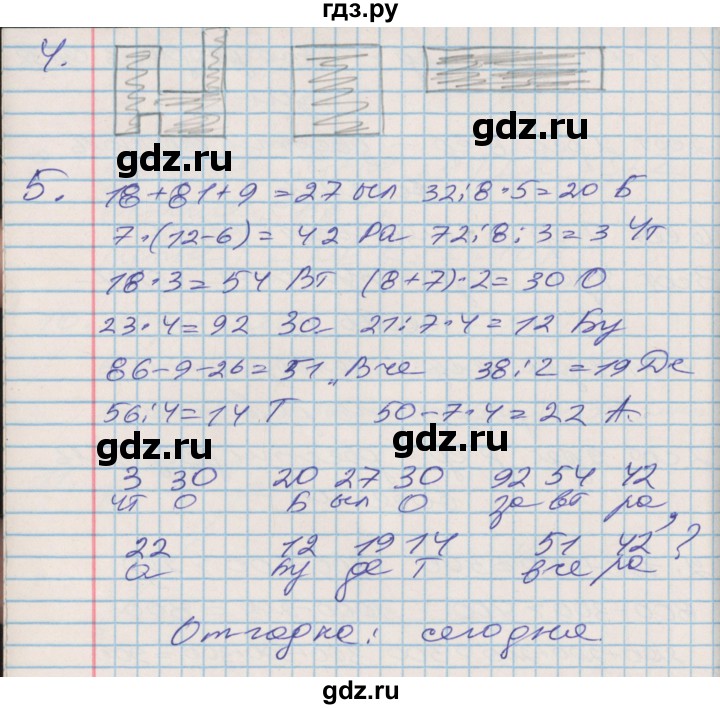 гдз.ру
4.
gdz.ru
gdz.ru
5. 18+81+9=27 ыл 32:8·5=20 Б
7·(12-6)=42 Ра 72:8:3=3 Чт
18·3=54 Вт (8+7)·2=30 О
23·4=92 За 21:7·4=12 Бу
86-9-26=51 „Вче 38:2=19 Де
56:4=14 Т 50-7·4=22 А.
gdz.ru
gdz.ru
3 30 20 27 30 92 54 42
чт о Б ыл о за вт ра,
22 12 19 14 51 42 ?
а бу де т вче ра
Отгадка: сегодня
gdz.ru
gdz.ru